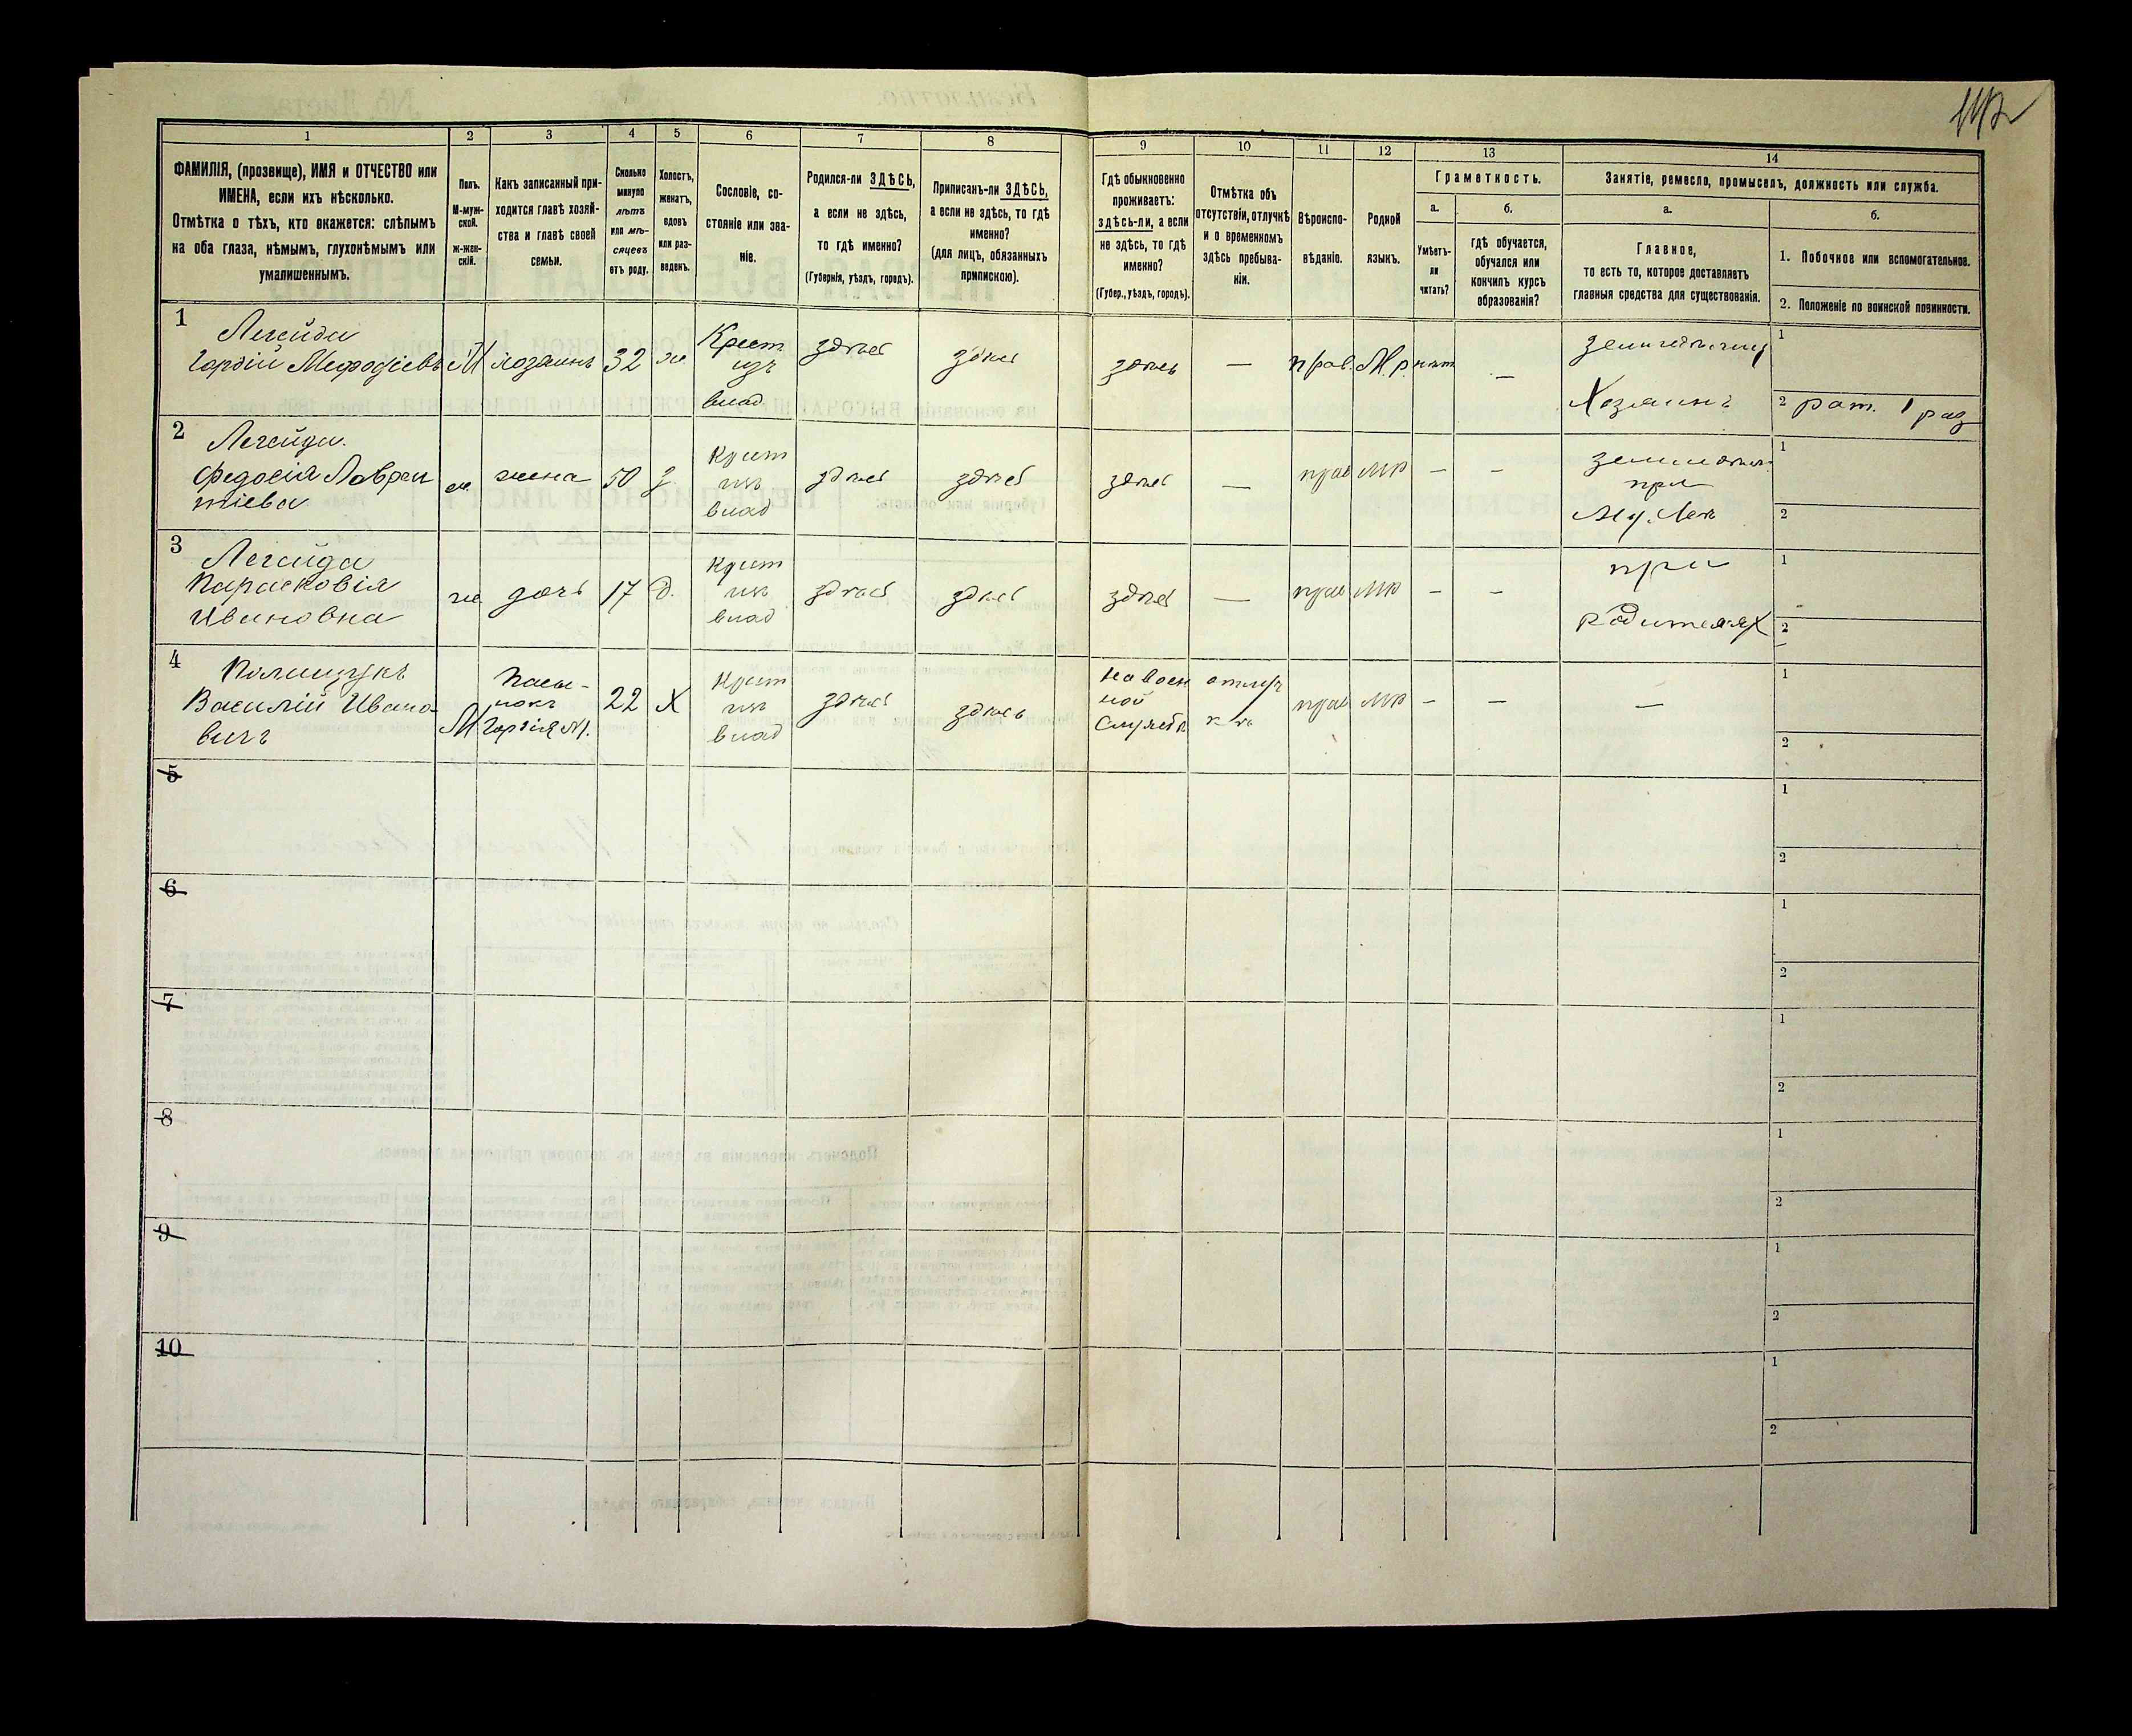 112
1
2
3
4
5
6
7
8
9
10
11
12
13
14
ФАМИЛІЯ, (прозвище), ИМЯ и ОТЧЕСТВО или
ИМЕНА, если ихъ нѣсколько.
Отмѣтка о тѣхъ, кто окажется: слѣпымъ
на оба глаза, нѣмымъ, глухонѣмымъ или
умалишеннымъ.
Полъ.
М-муж-
ской.
ж-жен-
скій.
Какъ записанный при-
ходится главѣ хозяй-
ства и главѣ своей
семьи.
Сколько
минуло
лѣтъ
или мѣ-
сяцевъ
отъ роду.
Холостъ,
женатъ,
вдовъ
или раз-
веденъ.
Сословіе, со-
стояніе или зва-
ніе.
Родился-ли ЗДѢСЬ,
а если не здѣсь,
то гдѣ именно?
(Губернія, уѣздъ, городъ).
Приписанъ-ли ЗДѢСЬ,
а если не здѣсь, то гдѣ
именно?
(для лицъ, обязанныхъ
припискою).
Гдѣ обыкновенно
проживаетъ:
здѣсь-ли, а если
не здѣсь, то гдѣ
именно?
(Губер., уѣздъ, городъ).
Отмѣтка объ
отсутствіи, отлучкѣ
и о временномъ
здѣсь пребыва-
ніи.
Вѣроиспо-
вѣданіе.
Родной
языкъ.
Грамотность.
а.
Умѣетъ-
ли
читать?
б.
гдѣ обучается,
обучался или
кончилъ курсъ
образованія?
Занятіе, ремесло, промыселъ, должность или служба.
а.
Главное,
то есть то, которое доставляетъ
главныя средства для существованія.
б.
1. Побочное или вспомогательное.
2. Положеніе по воинской повинности.
1
Легейда
Гордій Мефодіевъ
М
хозяинъ
32
ж.
Крест.
изъ
влад.
здѣсь
здѣсь
здѣсь
—
прав.
М.р.
нѣт
—
Хозяинъ
1
2 рат. 1 раз
2
Легейда
Федосія Лаврен
тіева
ж.
жена
50
Крест
изъ
влад
здѣсь
здѣсь
здѣсь
—
прав
МР
—
—
при
1
2
3
Легейда
Парасковія
Ивановна
ж.
дочь
17
д.
Крест
изъ
влад
здѣсь
здѣсь
здѣсь
—
прав
МР
—
—
при
родителях
1
2
4
Полищукъ
Василій Ивано
вичъ
М
Пасы-
нокъ
Гордія М.
22
Х
Крест
изъ
влад
здѣсь
здѣсь
На воен
ной
службѣ
отлуч
кѣ
прав
МР
—
—
—
1
2
5
1
2
6
1
2
7
1
2
8
1
2
9
1
2
10
1
2